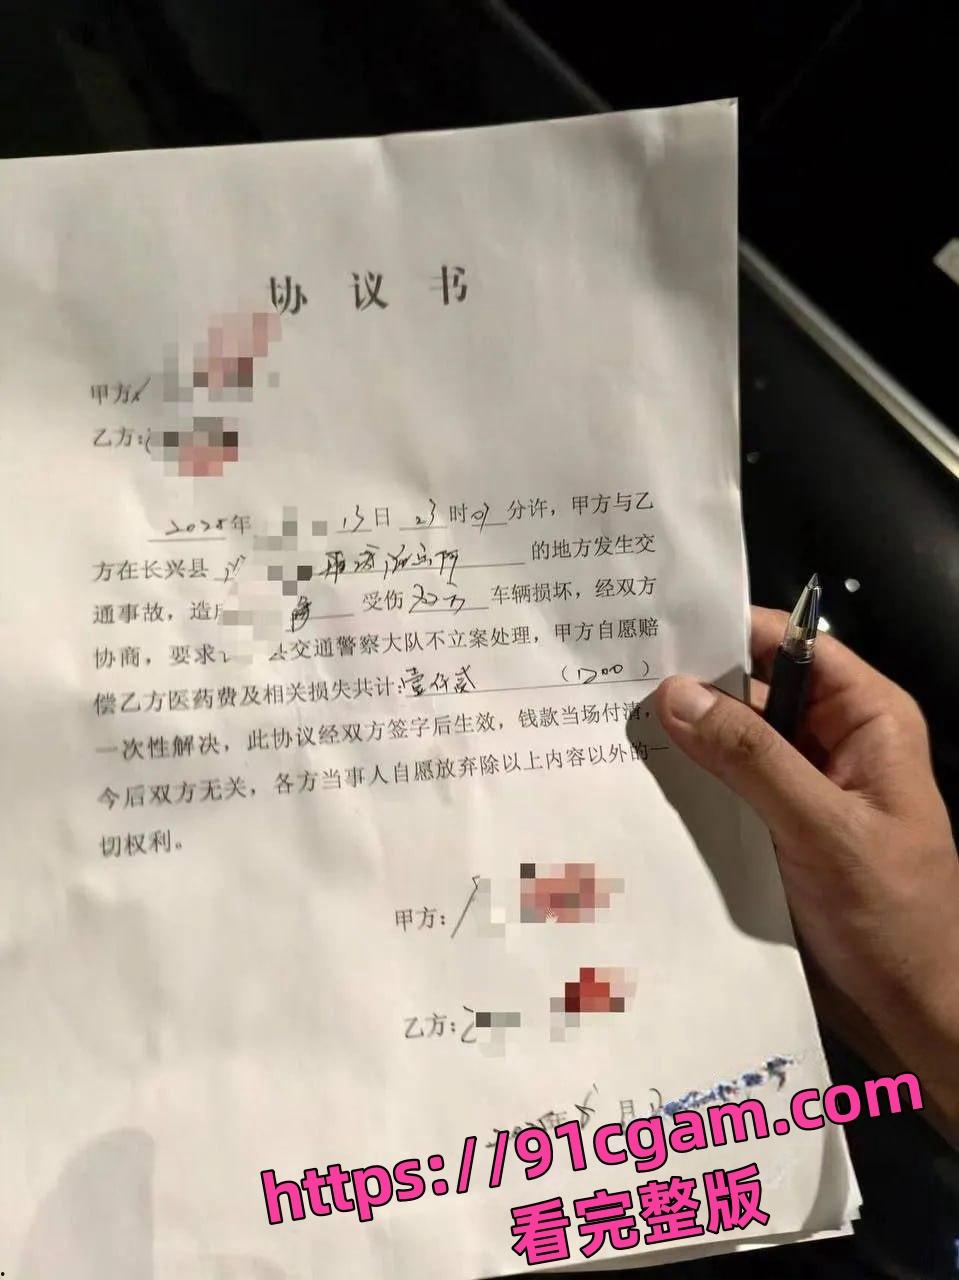 协 议 书
甲方
乙方:
2025年 13日 23时07分许，甲方与乙
方在长兴县 的地方发生交
通事故，造成 受伤 双方 车辆损坏，经双方
协商，要求 县交通警察大队不立案处理，甲方自愿赔
偿乙方医药费及相关损失共计:壹仟贰 (1200)
一次性解决，此协议经双方签字后生效，钱款当场付清，
今后双方无关，各方当事人自愿放弃除以上内容以外的一
切权利。
甲方:
乙方:
年 月
https://91cgam.com
看完整版